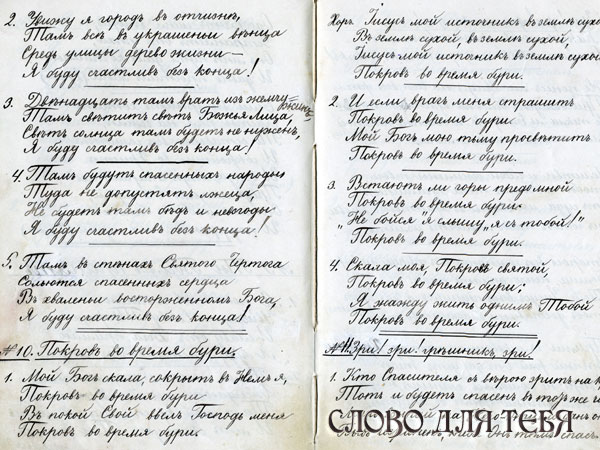 2. Увижу я городъ въ отчизнѣ,
Тамъ всѣ въ украшеньи вѣнца
Средь улицы дерево жизни —
Я буду счастливъ безъ конца!
3. Двѣнадцать тамъ вратъ изъ жемчу=
жинъ
Тамъ свѣтитъ свѣтъ Божья Лица,
Свѣтъ солнца тамъ будетъ не нуженъ,
Я буду счастливъ безъ конца!
4. Тамъ будутъ спасенныхъ народы
Туда не допустятъ лжеца,
Не будетъ тамъ бѣдъ и невзгоды
Я буду счастливъ безъ конца!
5. Тамъ въ стѣнахъ Святого Чертога
Сольются спасенныхъ сердца
Въ хваленіи восторженномъ Бога,
Я буду счастливъ безъ конца!
№10. Покровъ во время бури.
1. Мой Богъ скала, сокрытъ въ Немъ я,
Покровъ во время бури
Въ покой Свой ввелъ Господь меня
Покровъ во время бури.
Хоръ. Іисусъ мой источникъ въ землѣ сухо
Въ землѣ сухой, въ землѣ сухой,
Іисусъ мой источникъ въ землѣ сухой
Покровъ во время бури.
2. И если врагъ меня страшитъ
Покровъ во время бури
Мой Богъ мою тьму просвѣтитъ
Покровъ во время бури.
3. Встаютъ ли горы предомной
Покровъ во время бури.
"Не бойся" я слышу, "я съ тобой!"
Покровъ во время бури.
4. Скала моя, Покровъ святой,
Покровъ во время бури;
Я жажду жить однимъ Тобой
Покровъ во время бури.
№11. Зри! зри! грѣшникъ, зри!
1. Кто Спасителя съ вѣрою зритъ на
Тотъ и будетъ спасенъ въ тотъ же
СЛОВО ДЛЯ ТЕБЯ